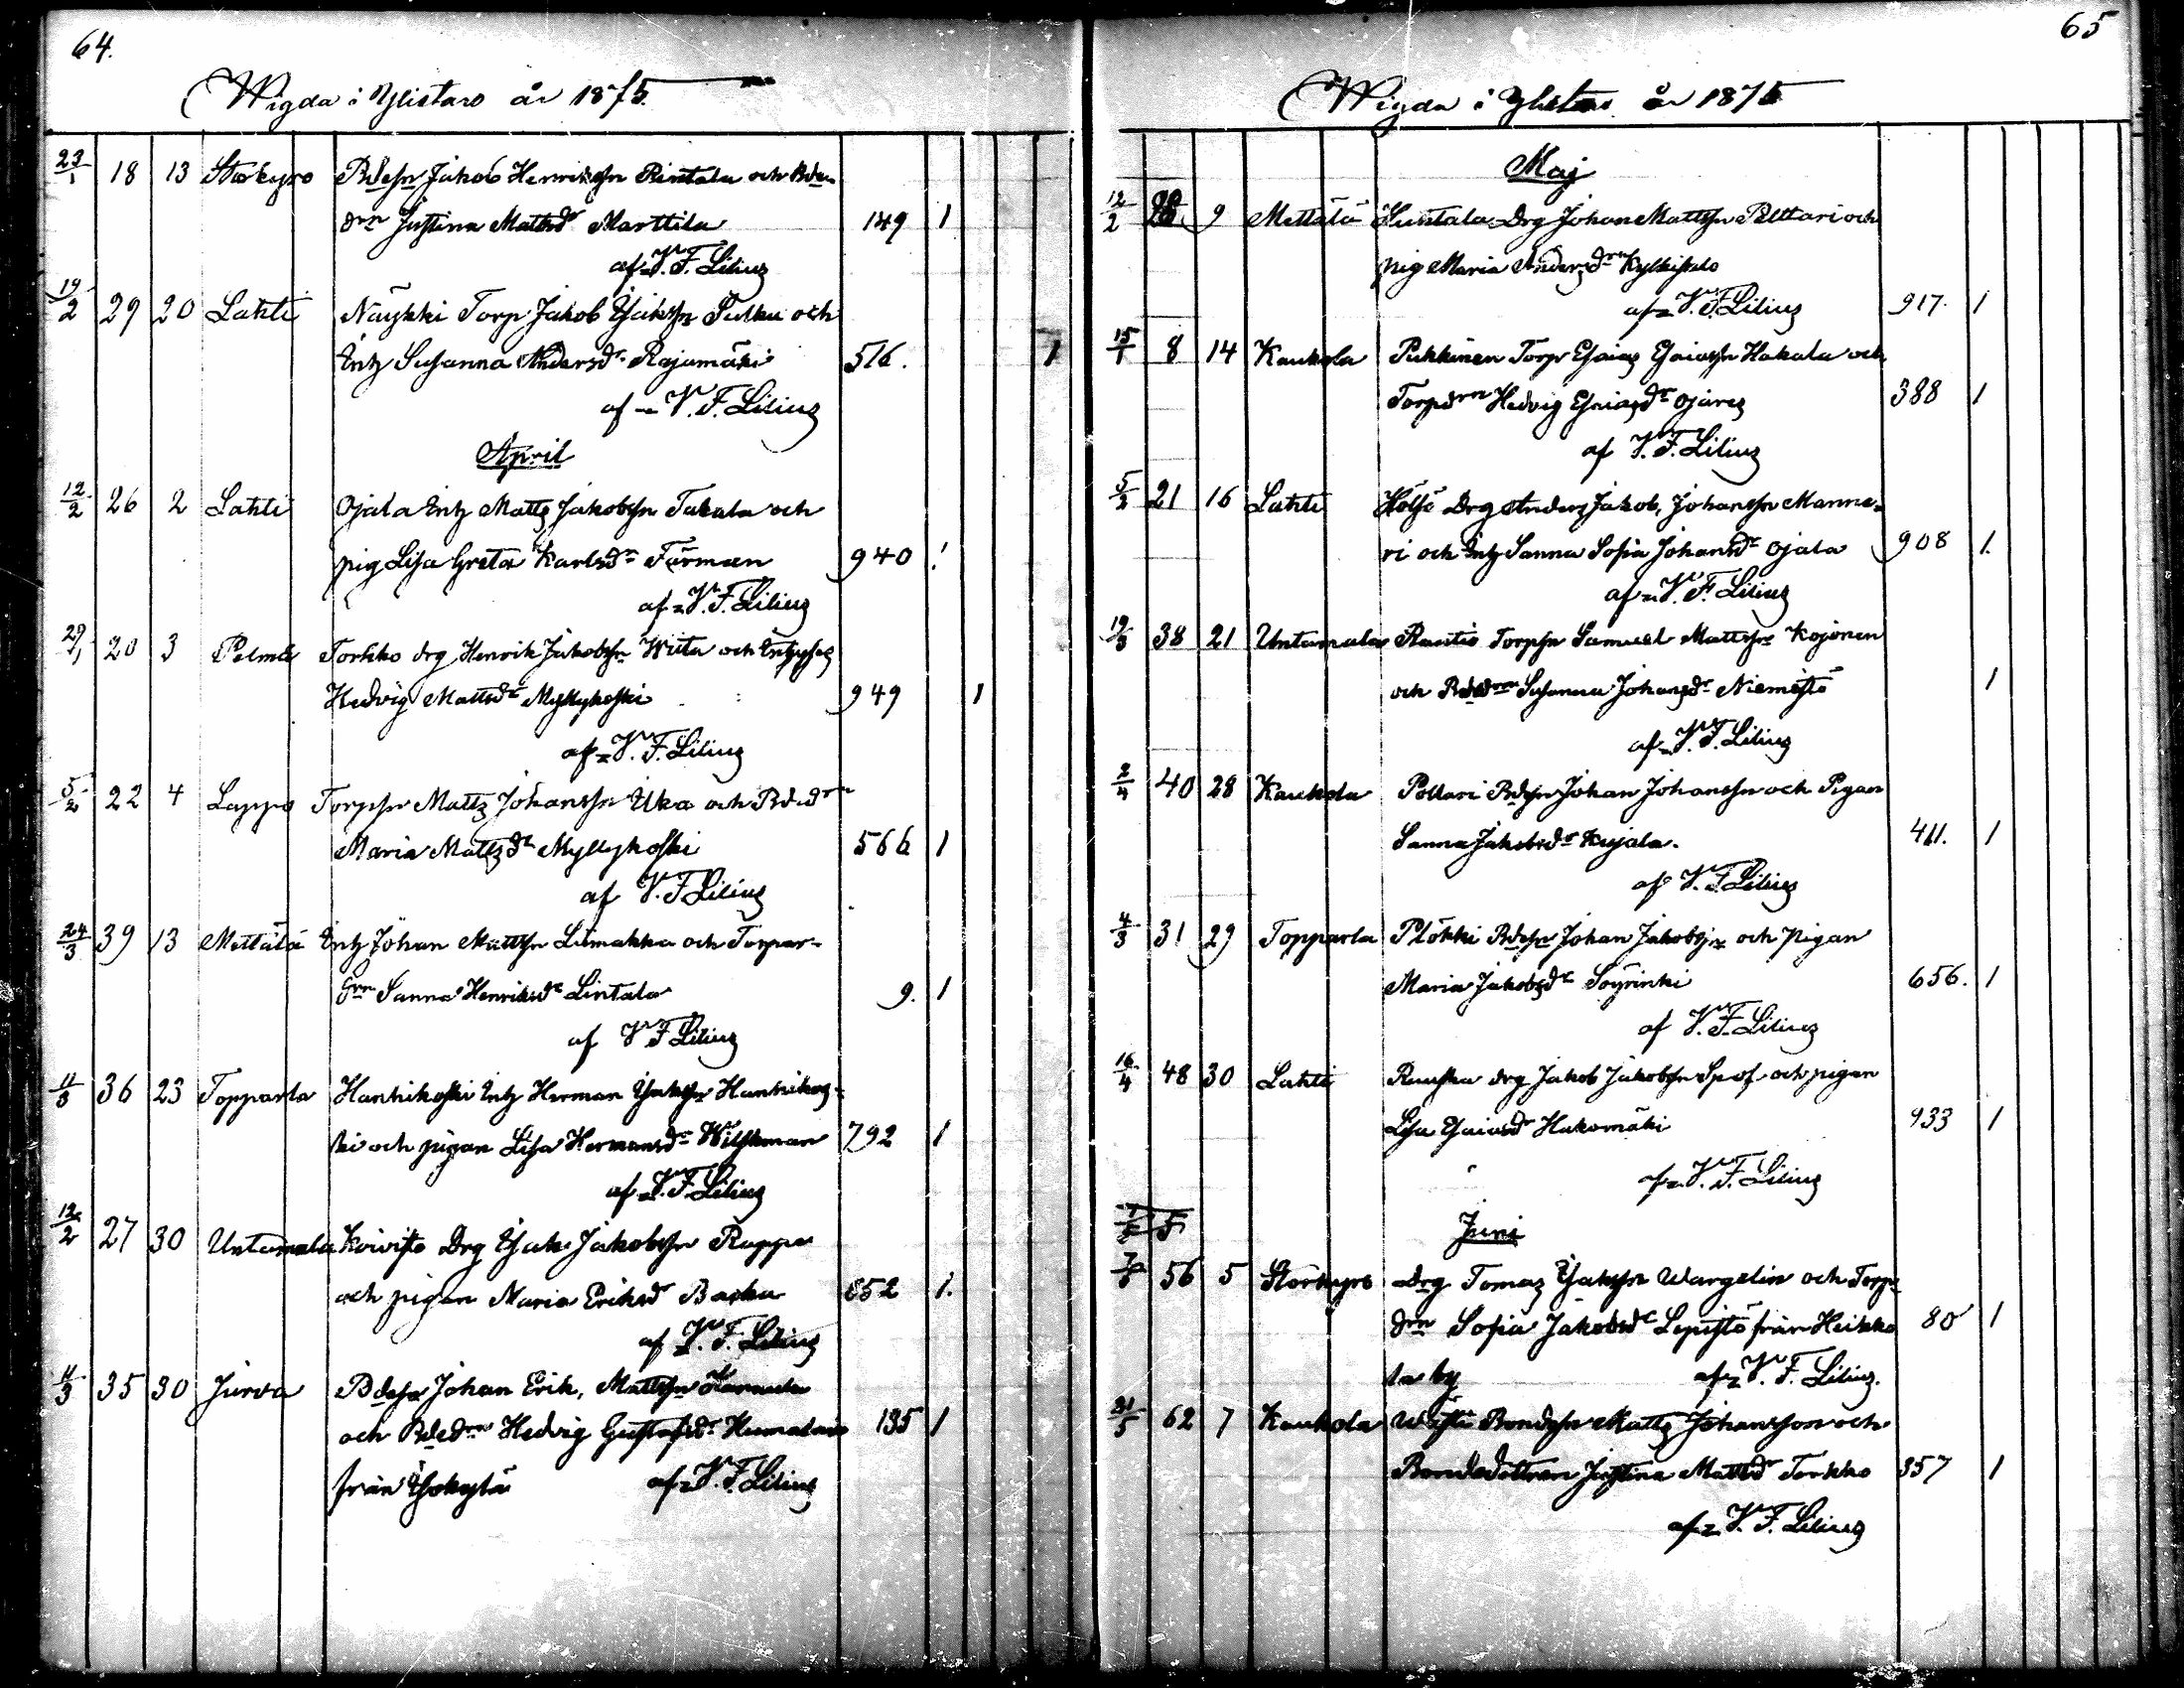 64.
Wigda i Ylistaro år 1875.
23/1 18 13 Storkyro Bdesn Jakob Henriksn Rintala och Bde-
drn Justina Mattsdr Marttila 149 1
af V. F. Lilius
19/2 29 20 Lahti Näykki Torp Jakob Isaksn Sulku och
Enk Susanna Andersdr Rajamäki 516. 1
af V. F. Lilius
April
12/2 26 2 Lahti Ojala Enk Matts Jakobsn Takala och
pig Lisa Greta Karlsdr Färman 940 1
af V. F. Lilius
29/1 20 3 Pelma Torkko drg Henrik Jakobsn Wiita och
Hedvig Mattsdr Myllykoski 949 1
af V. F. Lilius
5/2 22 4 Lappo Torpsn Matts Johansn Uka och Bdedrn
Maria Mattsdr Myllykoski 566 1
af V. F. Lilius
24/3 39 13 Mettälä Enk Johan Mattsn Liimakka och Torpar-
drn Sanna Henriksdr Lintala 9. 1
af V. F. Lilius
11/3 36 23 Topparla Hanhikoski Enk Herman Isaksn Hanhikos-
ki och pigan Lisa Hermansdr Wilkman 792 1
af V. F. Lilius
12/2 27 30 Untamala Koivisto Drg Isak Jakobsn Rappe
och pigan Maria Eriksdr Backa 852 1.
af V. F. Lilius
11/3 35 30 Jurva Bdesn Johan Erik, Mattsn
och Bdedrn Hedvig Gustafsdr 135 1
från Isokylä af V. F. Lilius
65
Wigda i Ylistaro år 1875
Maj
12/2 9 Mettälä Huntala Drg Johan Mattsn Pelttari och
pig Maria Andersdrn
af V. F. Lilius 917. 1
15/1 8 14 Kaukola Pukkinen Torp Esaias Esaiasn Hakala och
Torpdrn Hedvig Esaiasdr Ojares 388 1
af V. F. Lilius
5/2 21 16 Lahti Hölsö Drg Anders Jakob, Johansn Manne-
ri och Enk Sanna Sofia Johansdr Ojala 908 1.
af V. F. Lilius
19/3 38 21 Untamala Rautio Torpsn Samuel Mattsn Kojonen
och Bdedrn Susanna Johansdr Niemistö 1
af V. F. Lilius
2/4 40 28 Kaukola Pollari Bdesn Johan Johansn och Pigan
Sanna Jakobsdr Kujala. 411. 1
af V. F. Lilius
4/3 31 29 Topparla Plökki Bdesn Johan Jakobsn och pigan
Maria Jakobsdr Söyrinki 656. 1
af V. F. Lilius
16/4 48 30 Lahti Ranska drg Jakob Jakobsn Spof och pigan
Lisa Esaiasdr Hakomäki 933 1
af V. F. Lilius
5
Juni
56 5 Storkyro Drg Tomas Isaksn Wargelin och Torp-
drn Sofia Jakobsdr Lepistö från Heikko
80 1
la by af V. F. Lilius.
21/5 62 7 Kaukola Bondsn Matts Johansson och
Bondedottren Justina Mattsdr Torkko 357 1
af V. F. Lilius